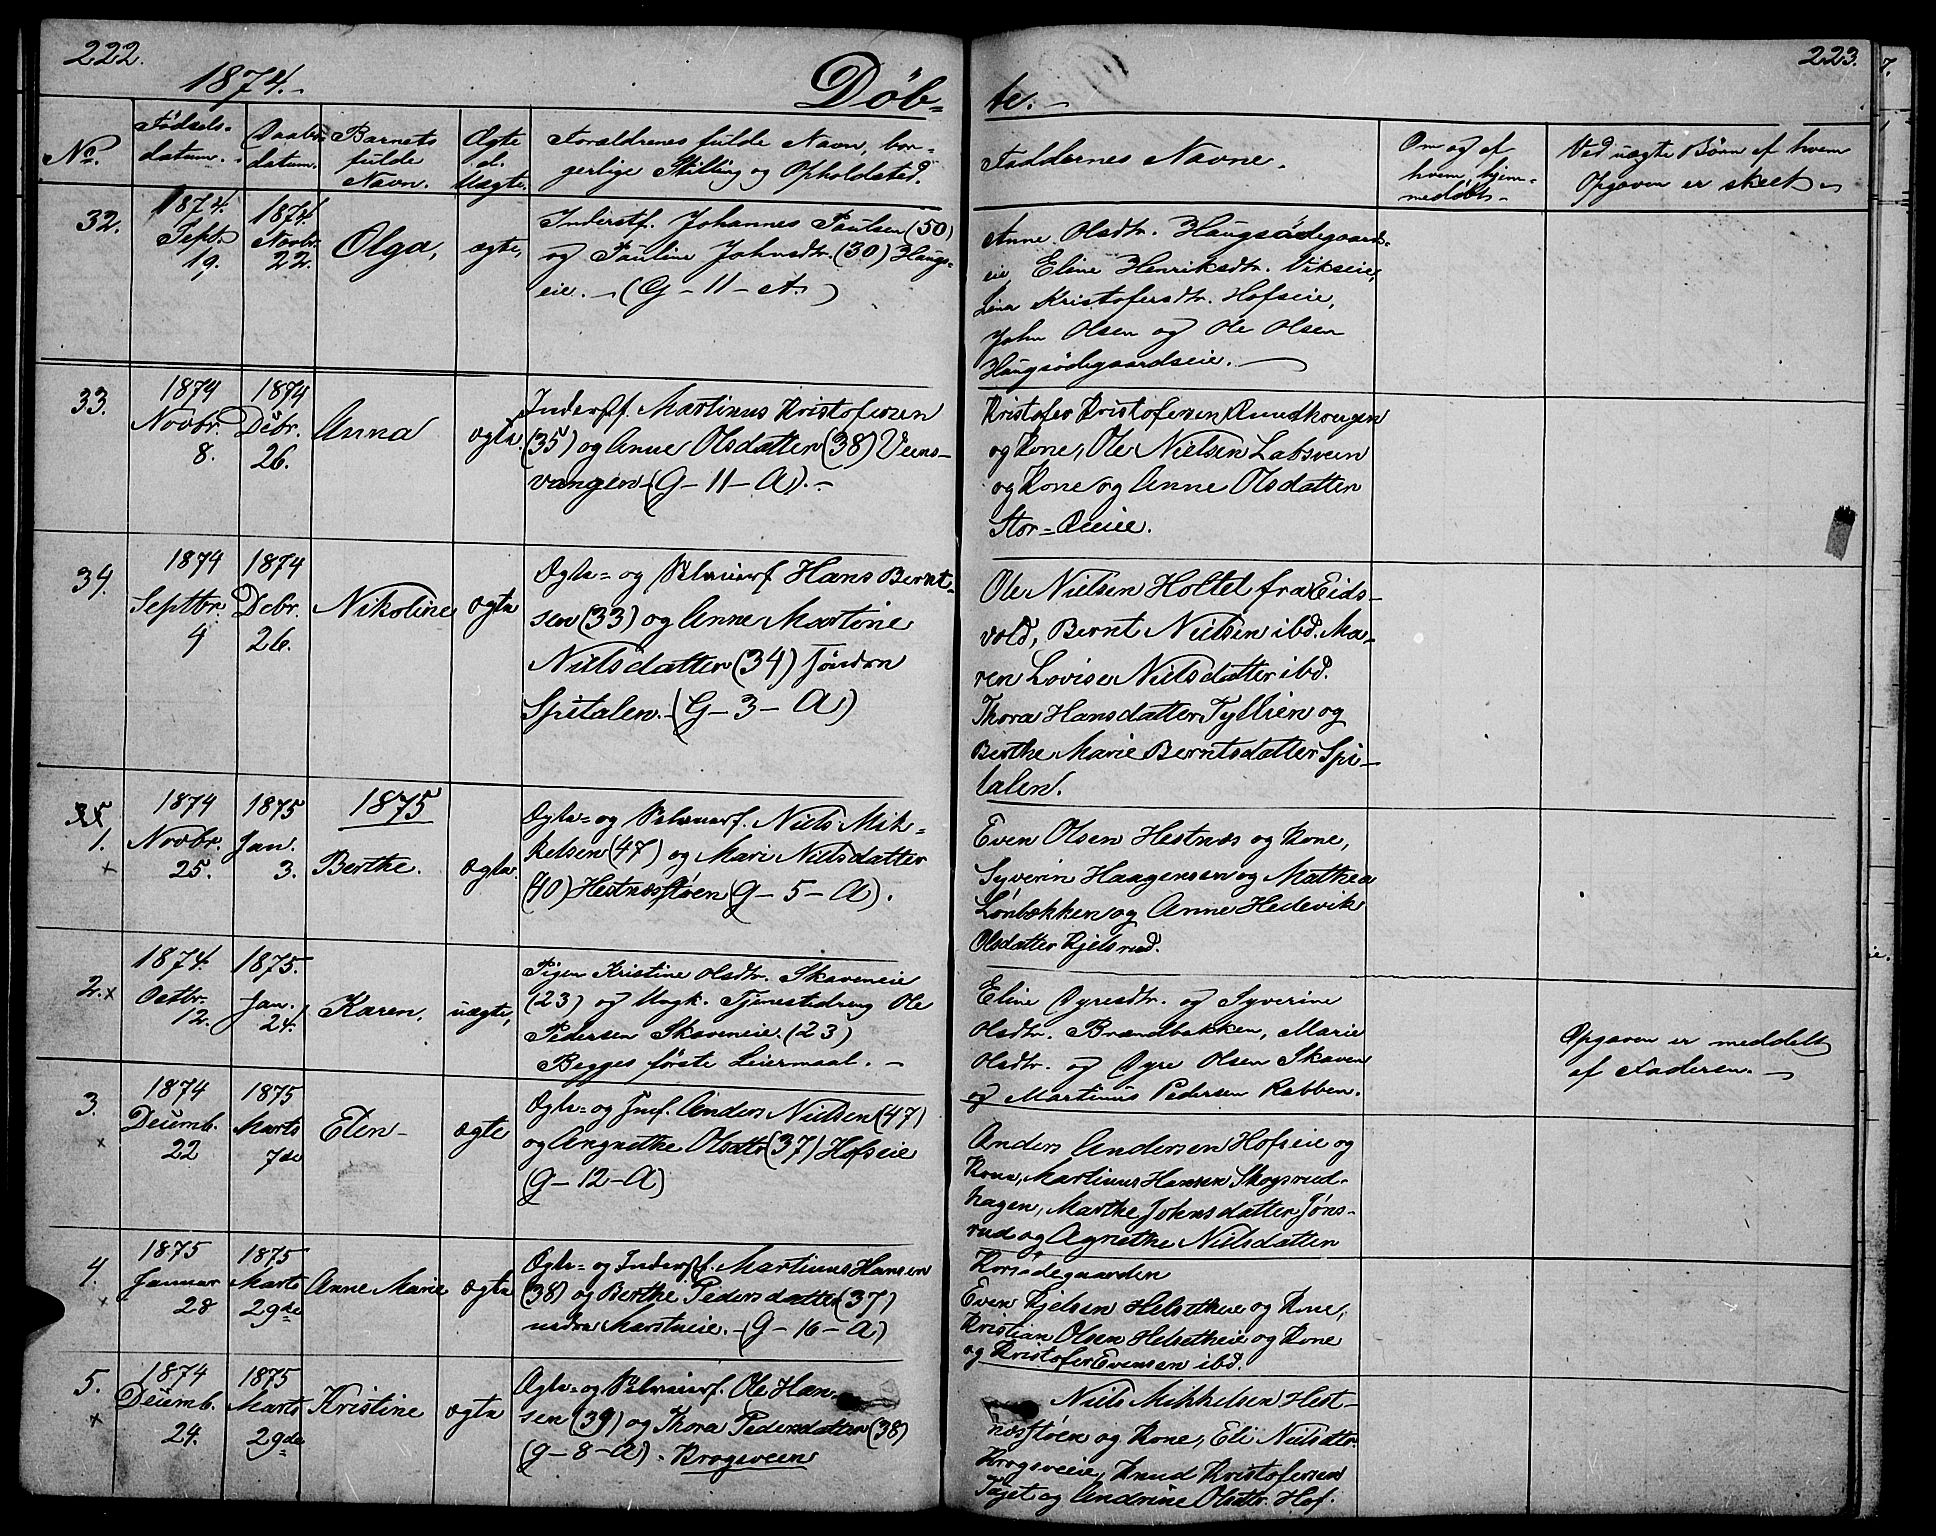 222.
1874.-
Döb-
No.
Födsels-
datum.
Daabs-
datum.
Barnets
fulde
Navn.
Ægte
el.
Uægte.
Forældrenes fulde Navn, bor-
gerlige Stilling og Opholdsted.
32.
1874.
Sept.
19.
1874.
Novbr.
22.
Olga,
ægte,
Inderstf. Johannes Paulsen (50)
og Pauline Johnsdtr. (30) Haugs-
eie. - (G - 11 - A.)
33.
1874
Novbr.
8.
1874
Debr.
26.
Anna
ægte.
Inderstf. Martinus Kristofersen
(35) og Anne Olsdatter (38) Veens-
vangen - (G - 11 - A). -
34.
1874
Septbr.
4
1874
Debr.
26.
Nikoline
ægte
Ægte= og Selveierf. Hans Bernt-
sen (33) og Anne Martine
Nielsdatter (34) Søndre
Spitalen. - (G - 3 - A)
1.
×
1874
Novbr.
25.
1875
Jan.
3.
1875
Berthe.
ægte.
Ægte= og Selveierf. Niels Mik-
kelsen (47) og Mari Nielsdatter
(40) Hestnæsstøen (G - 5 - A).
2.×
1874.
Octbr.
12.
1875.
Jan.
24.
Karen.
uægte,
Pigen Kristine Olsdtr. Skaveneie
(23) og Ungk. Tjenestedreng Ole
Pedersen Skaveneie. (23)
Begges første Leiermaal. -
3.
×
1874
Decemb.
22
1875
Marts
7de
Elen -
ægte
Ægte= og Anders Nielsen (47)
og Angnethe Olsdtr (37) Hofseie
(G - 12 - A)
4.
×
1875
Januar
28
1875
Marts
29de
Anne Marie
ægte
Ægte= og Inderstf. Martinus Hansen
(38) og Berthe Pedersdatter (37)
- (G - 16 - A)
5.
×
1874
Decemb.
24.
1875
Marts
29de
Kristine
ægte
Ægte= og Selveierf. Ole Han-
sen (39) og Thora Pedersdatter (38)
(G - 8 - A). Krogsveen
223.
te. -
Faddernes Navne.
Om og af
hvem hjem-
medøbt. -
Ved uægte Børn af hvem
Opgaven er skeet. -
Anne Olsdtr. Haugsödegaards-
eie Eline Henriksdtr. Vikseie,
Lina Kristofersdtr. Hofseie,
John Olsen og Ole Olsen
Haugsödegaardseie. -
Kristofer Kristofersen Rundhougen
og Kone, Ole Nielsen Labsveen
og Kone og Anne Olsdatter
Stor=Reeie.
Ole Nielsen Holtet fra Eids-
vold, Bernt Nielsen ibd. Ma-
ren Lovise Nielsdatter ibd.
Thora Hansdatter Tyllien og
Berthe Marie Berntsdatter Spi-
talen.
Even Olsen Hestnæs og Kone,
Syverin Haagensen og Mathea
Lønbækken og Anne Hedevik
Olsdatter Kjelsrud.
Eline Gyresdtr. og Syverine
Olsdtr. Brændbakken, Marie
Olsdtr. og Gyre Olsen Skaven
og Martinus Pedersen Rabben.
Opgaven er meddelt
af Faderen. -
Anders Andersen Hofseie og
Kone, Martinus Hansen Skogsrud-
hagen, Marthe Johnsdatter Jøns-
rud og Agnethe Nielsdatter
Korsødegaarden
Even Kjelsen Helsetheie og Kone,
Kristian Olsen Helsetheie og Kone
og Kristofer Evensen ibd.
Niels Mikkelsen Hest-
næsstøen og Kone, Eli Nielsdtr.
Krogsveeie, Knud Kristofersen
og Andrine Olsdtr. Hof.